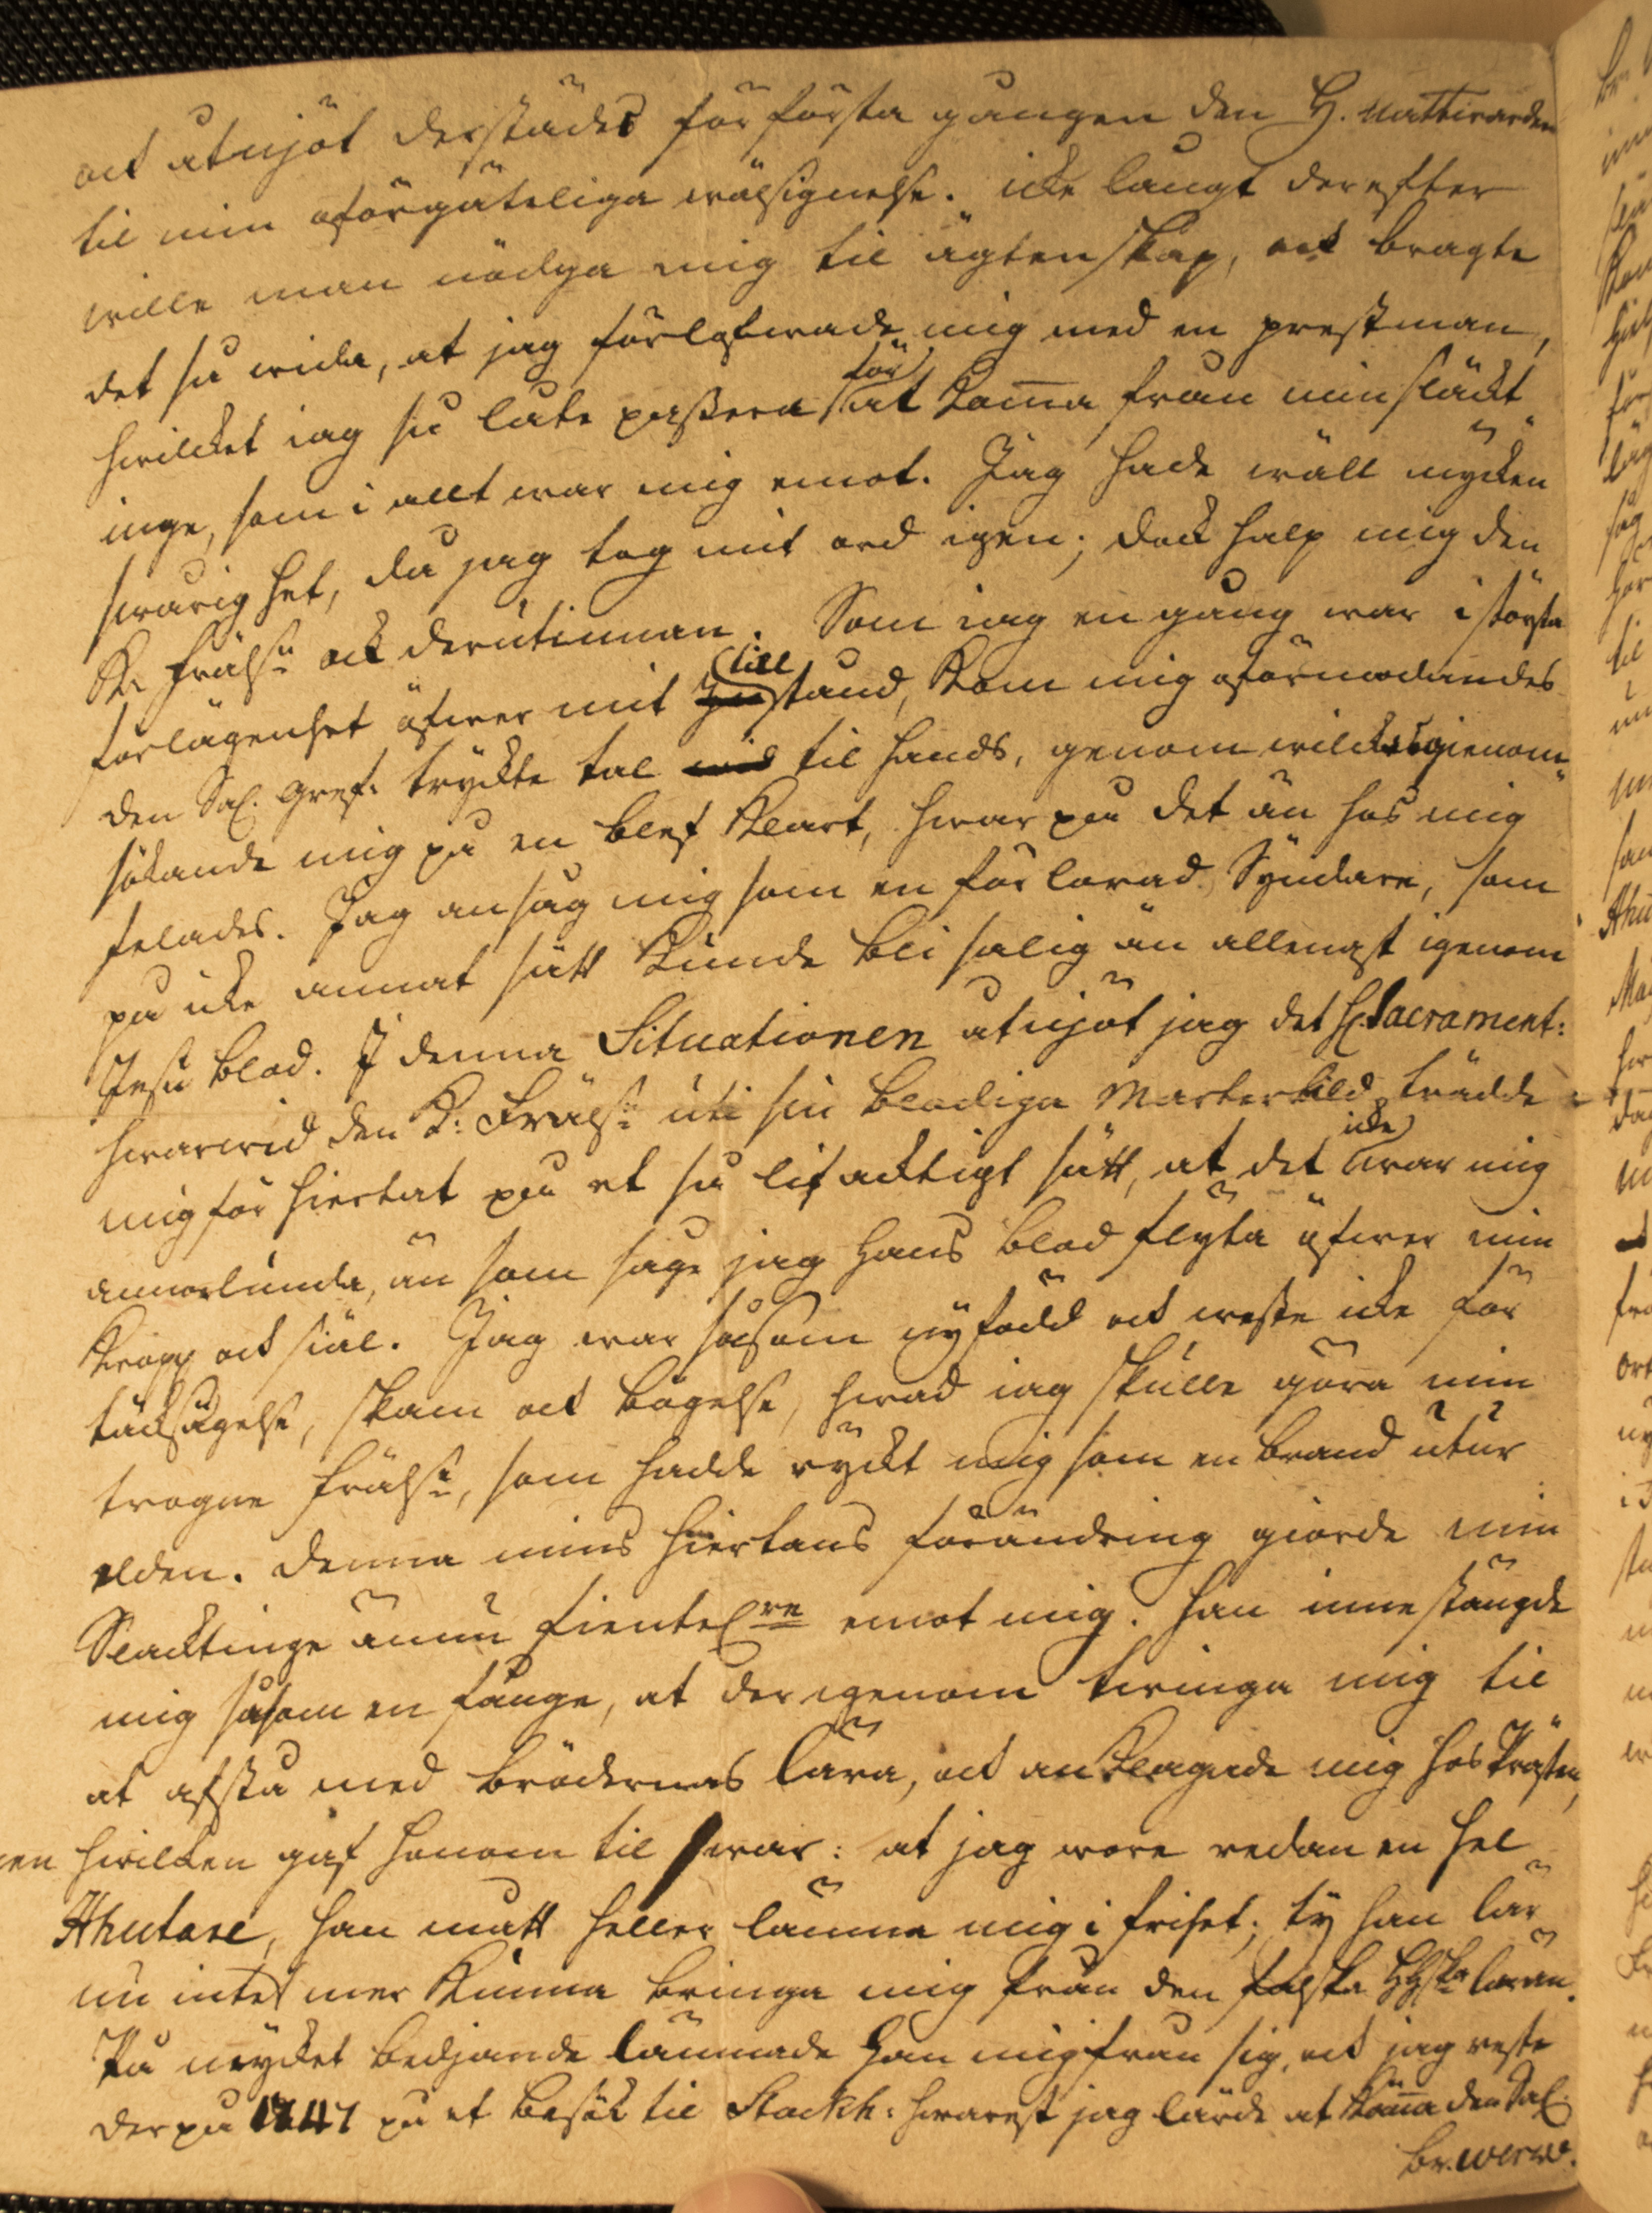 ock åtnjöt derstädes för första gången den H. Nattwarden
til min oförgäteliga wälsignelse. icke långt derefter
wille man nödga mig til ägtenskap, ock bragte
det så wida, at jag förlofwade mig med en prestman,
hwilcket iag så lät passera för at komma från min släckt
inge, som i allt war mig emot. Jag hade wäll mycken
swårighet, då jag tog mit ord igen; dock halp mig den
K. Fräls:n ock derutinnan. Som iag en gång war i största
förlägenhet öfwer mit tillstånd, kom mig oförmodandes
den Sal. Gref. tryckte tal til hands, genom wilckas gienom
sökande mig på en blef klart, hwar på det än hos mig
felades. Jag ansåg mig som en förlorad Syndare, som
på icke annat sätt kunde bli salig än allenast igenom
Jesu blod. I denna Situationen åtnjöt jag det H. Sacrament:
hwarwid den K: Fräls:n uti sin blodiga Marterbild trädde
mig för hiertat på et så lifacktigt sätt, at det icke war mig
annorlunda, än som såge jag Hans blod flyta öfwer min
kropp ock siäl. Jag war såsom nyfödd ock wiste icke för
tacksägelse, skam ock bögelse, hwad iag skulle göra min
trogne Fräls:e, som hadde ryckt mig som en brand utur
elden. Denna mins hiertans förändring giorde min
Släcktinge ännu fientel:re emot mig. Han innestängde
mig såsom en fånge, at derigenom twinga mig til
at afstå med brödernas lära, ock anklagade mig hos Prästen,
hwilcken gaf honom til swar: at jag wore redan en hel
Hhutare, han mått heller lämna mig i frihet; ty han lär
nu intet mer kunna bringa mig från den falska HHska läran.
På mycket bedjande lämnade han mig från sig, ock jag reste
derpå 1747 på et besök til Stockh: hwarest jag lärde at känna den Sal.
br.